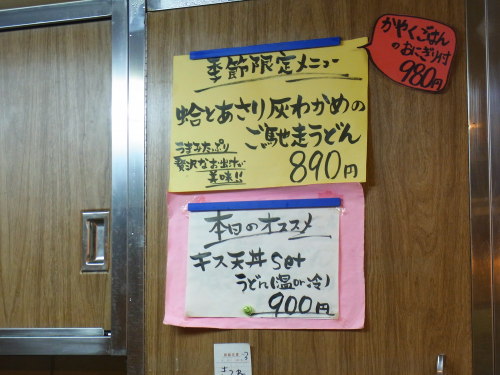 季節限定メニュー
かやくごはん
のおにぎり付
980円
蛤とあさり灰わかめの
ご馳走うどん
うまみたっぷり
贅沢なお出汁が
美味!!
890円
本日のオススメ
キス天丼set
うどん(温or冷)
900円